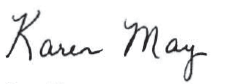 Karen May